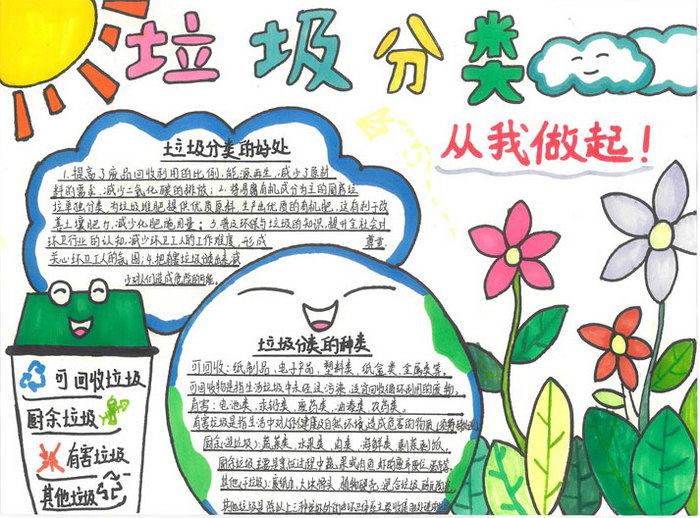 垃圾分类
从我做起!
垃圾分类的好处
1.提高了废品回收利用的比例,能源再生,减少了原材
料的需求,减少二氧化碳的排放;2.将易腐有机成分为主的厨房垃
圾单独分类,为垃圾堆肥提供优质原料,生产出优质的有机肥,这有利于改
善土壤肥力,减少化肥施用量;3.普及环保与垃圾的知识,提升全社会对
环卫行业的认知,减少环卫工人的工作难度,形成 尊重、
关心环卫工人的氛围;4.把有害垃圾
少对人们造成危险的可能。
可回收垃圾
厨余垃圾
有害垃圾
其他垃圾
垃圾分类的种类
可回收:纸制品、电子产品、塑料类、纸盒类、金属类等。
可回收物是指生活垃圾中未经过污染、适宜回收循环利用的废物。
有害:电池类、水银类、废药类、油漆类、农药类。
有害垃圾是指生活中对人体健康及自然环境造成危害的物质
厨余(湿垃圾):蔬菜类、水果类、肉类、海鲜类、剩菜剩饭。
厨余垃圾主要是
其他(干垃圾):
其他垃圾是